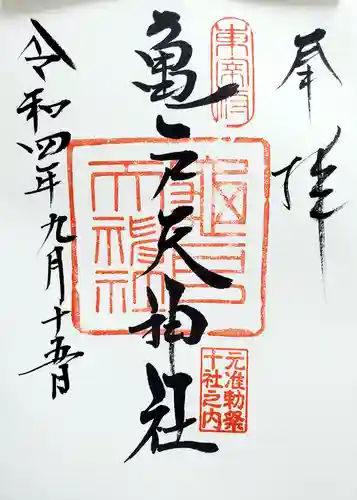 奉拝
東宰府
亀戸天神社
亀戸天神社
元准勅祭
十社之内
令和四年九月十五日